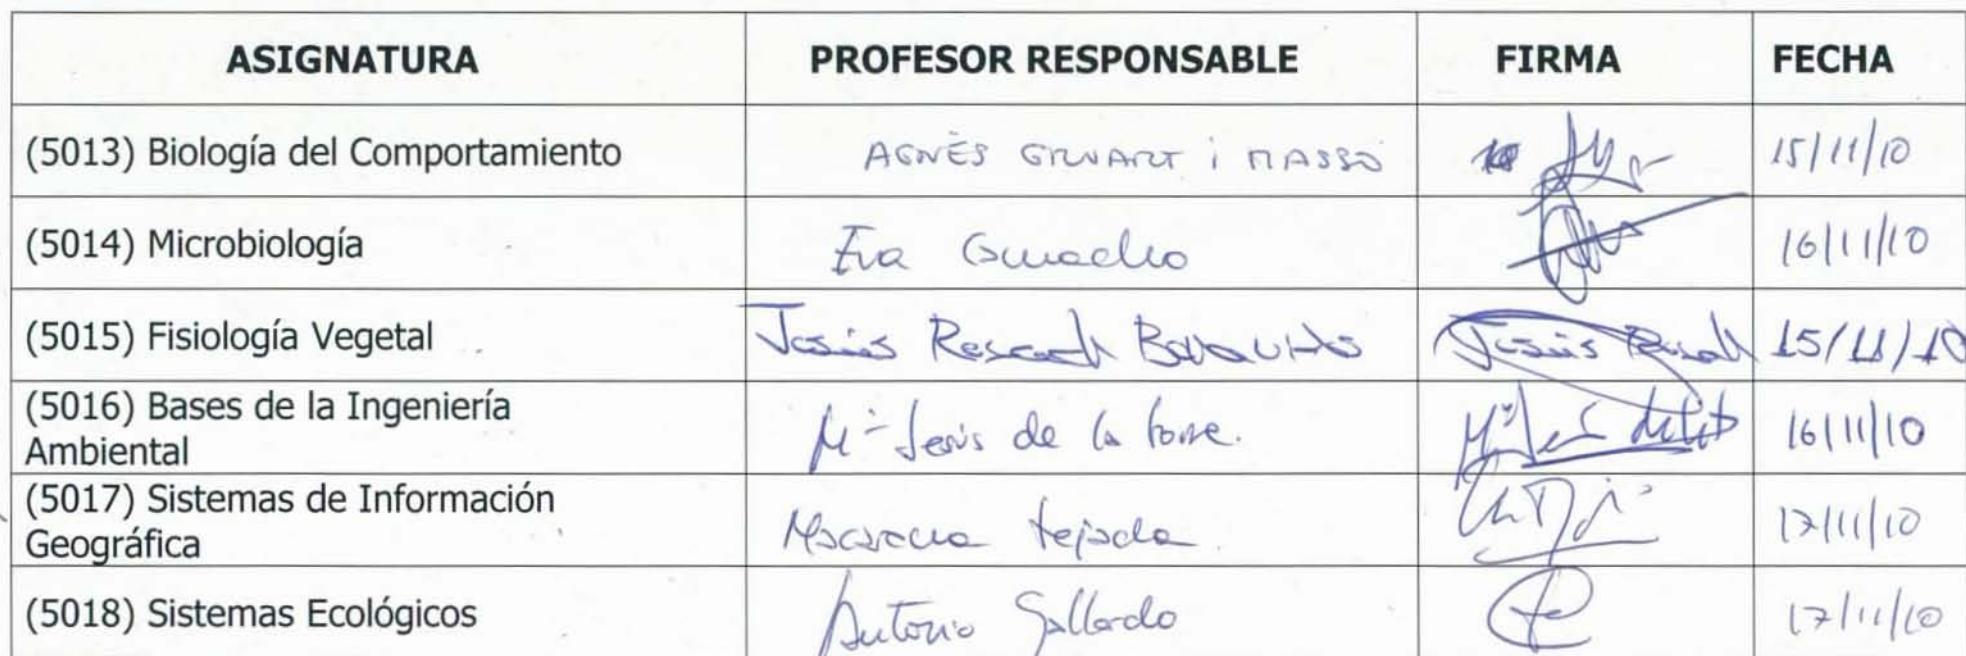 ASIGNATURA PROFESOR RESPONSABLE FIRMA FECHA
(5013) Biología del Comportamiento AGNÈS GRUART i MASSÓ 15/11/10
(5014) Microbiología Eva Camacho 16/11/10
(5015) Fisiología Vegetal Jesús Rexach Jesús Rexach 15/11/10
(5016) Bases de la Ingeniería
Ambiental Mª Jesús de la Torre. 16/11/10
(5017) Sistemas de Información
Geográfica Macarena Tejada 17/11/10
(5018) Sistemas Ecológicos Antonio Gallardo 17/11/10